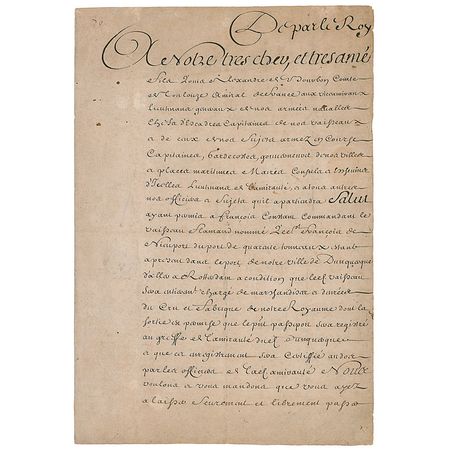 De par le Roy
A Notre tres cher, et tres amé
fils Louis Alexandre de Bourbon Comte
de Toulouze Amiral de france aux viceamiraux
lieutenans generaux de nos armées navalles
Chefs d'Escadres Capitaines de nos vaisseaux
a de ceux de nos Sujets armez en Course
Capitaines, gouverneurs de nos villes
et places maritimes Maires Consuls
Lieutenans de l'amirauté, et a tous autres
nos officiers et Sujets qu'il apartiendra Salut
ayant permis a françois Constam Commandant le
vaisseau flamand nommé françois de
Nieuport du port de quarante tonneaux estant
apresent dans le port de notre ville de Dunquerque
d'aller a Rotterdam a condition que led. vaisseau
sera entierem.t chargé de marchandises et denrées
du Cru et fabrique de notre Royaume dont la
sortie est permise que le pnt passeport sera registré
au greffe de l'amirauté dud. Dunquerque
et que cet enregistrement sera Certiffié au dos
par les officiers de lad. amirauté Nous
voulons et vous mandons que vous ayez
a laisser seurement et librement passer